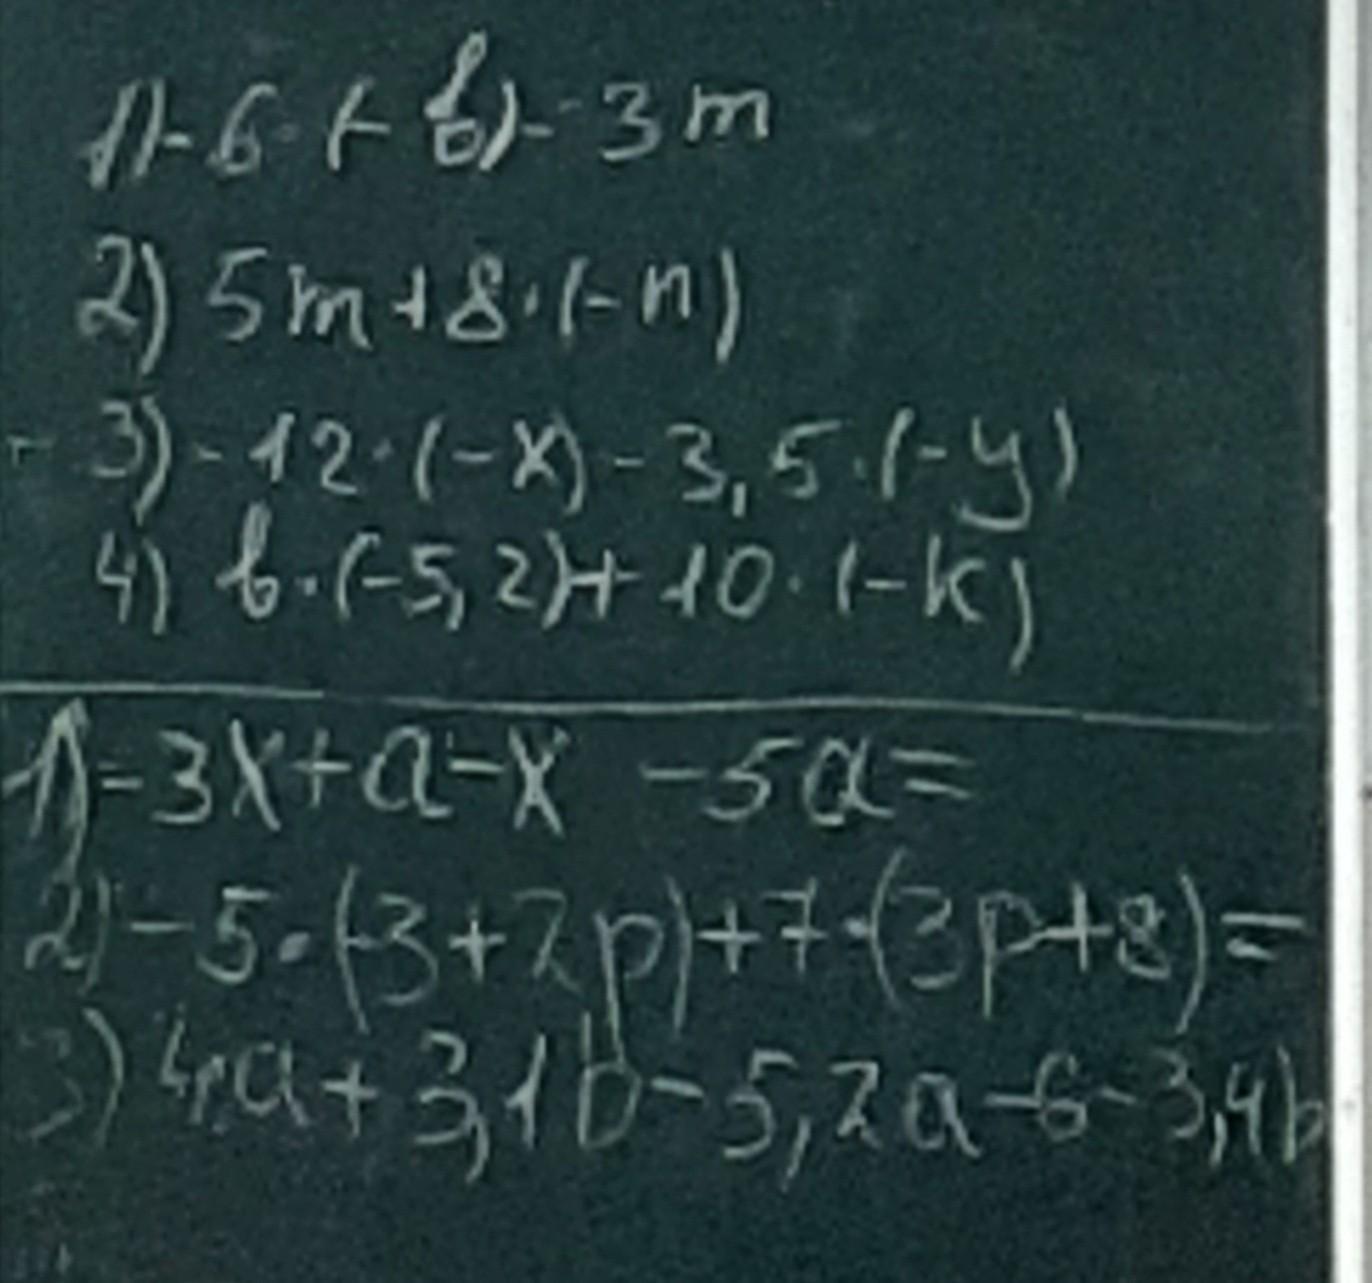 1) -6·(-b)-3m
2) 5m+8·(-n)
3) -12·(-x)-3,5·(-y)
4) b·(-5,2)+10·(-k)
1) -3x+a-x -5a=
2) -5·(-3+2p)+7·(3p+8)=
3) 4a+3,1b-5,2a-6-3,4b